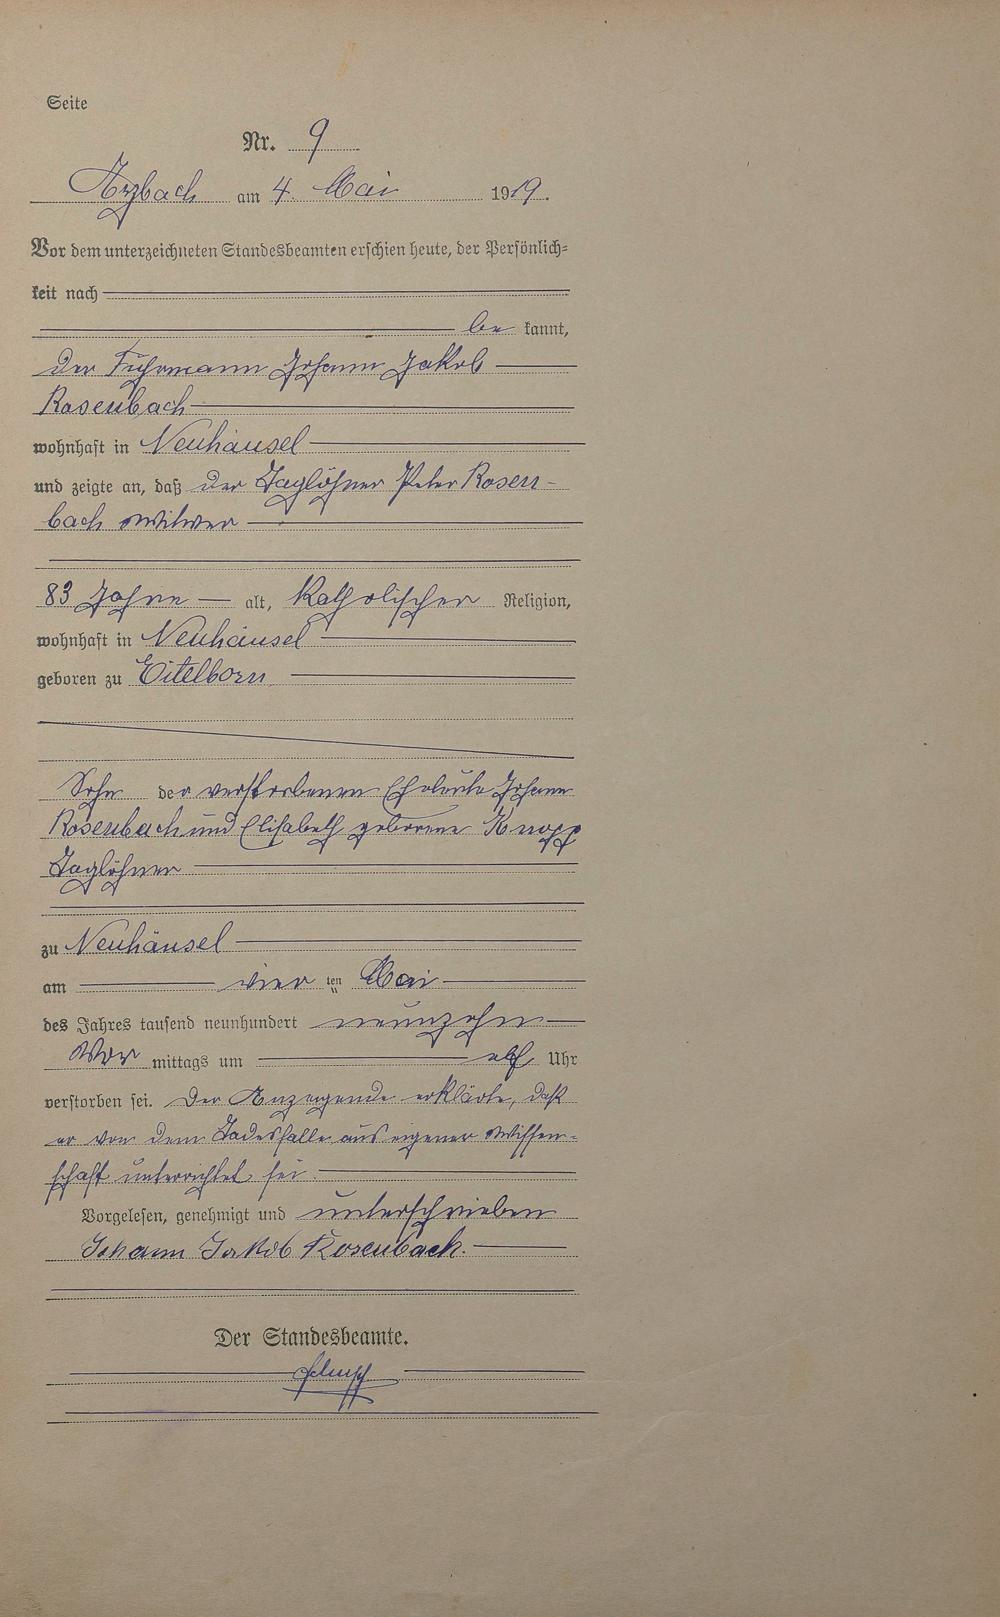 Seite
Nr. 9
Arzbach am 4. Mai 1919.
Vor dem unterzeichneten Standesbeamten erschien heute, der Persönlich=
keit nach
be kannt,
der Fuhrmann Johann Jakob
Rosenbach
wohnhaft in Neuhäusel
und zeigte an, daß der Taglöhner Peter Rosen-
bach Witwer
83 Jahre alt, Katholischer Religion,
wohnhaft in Neuhäusel
geboren zu Eitelborn
Sohn der verstorbenen Eheleute Johann
Rosenbach und Elisabeth geborene Knopp
Taglöhner
zu Neuhäusel
am vier ten Mai
des Jahres tausend neunhundert neunzehn
Vor mittags um elf Uhr
verstorben sei. Der Anzeigende erklärte, daß
er von dem Todesfalle aus eigener Wissen=
schaft unterrichtet sei.
Vorgelesen, genehmigt und unterschrieben
Johann Jakob Rosenbach.
Der Standesbeamte.